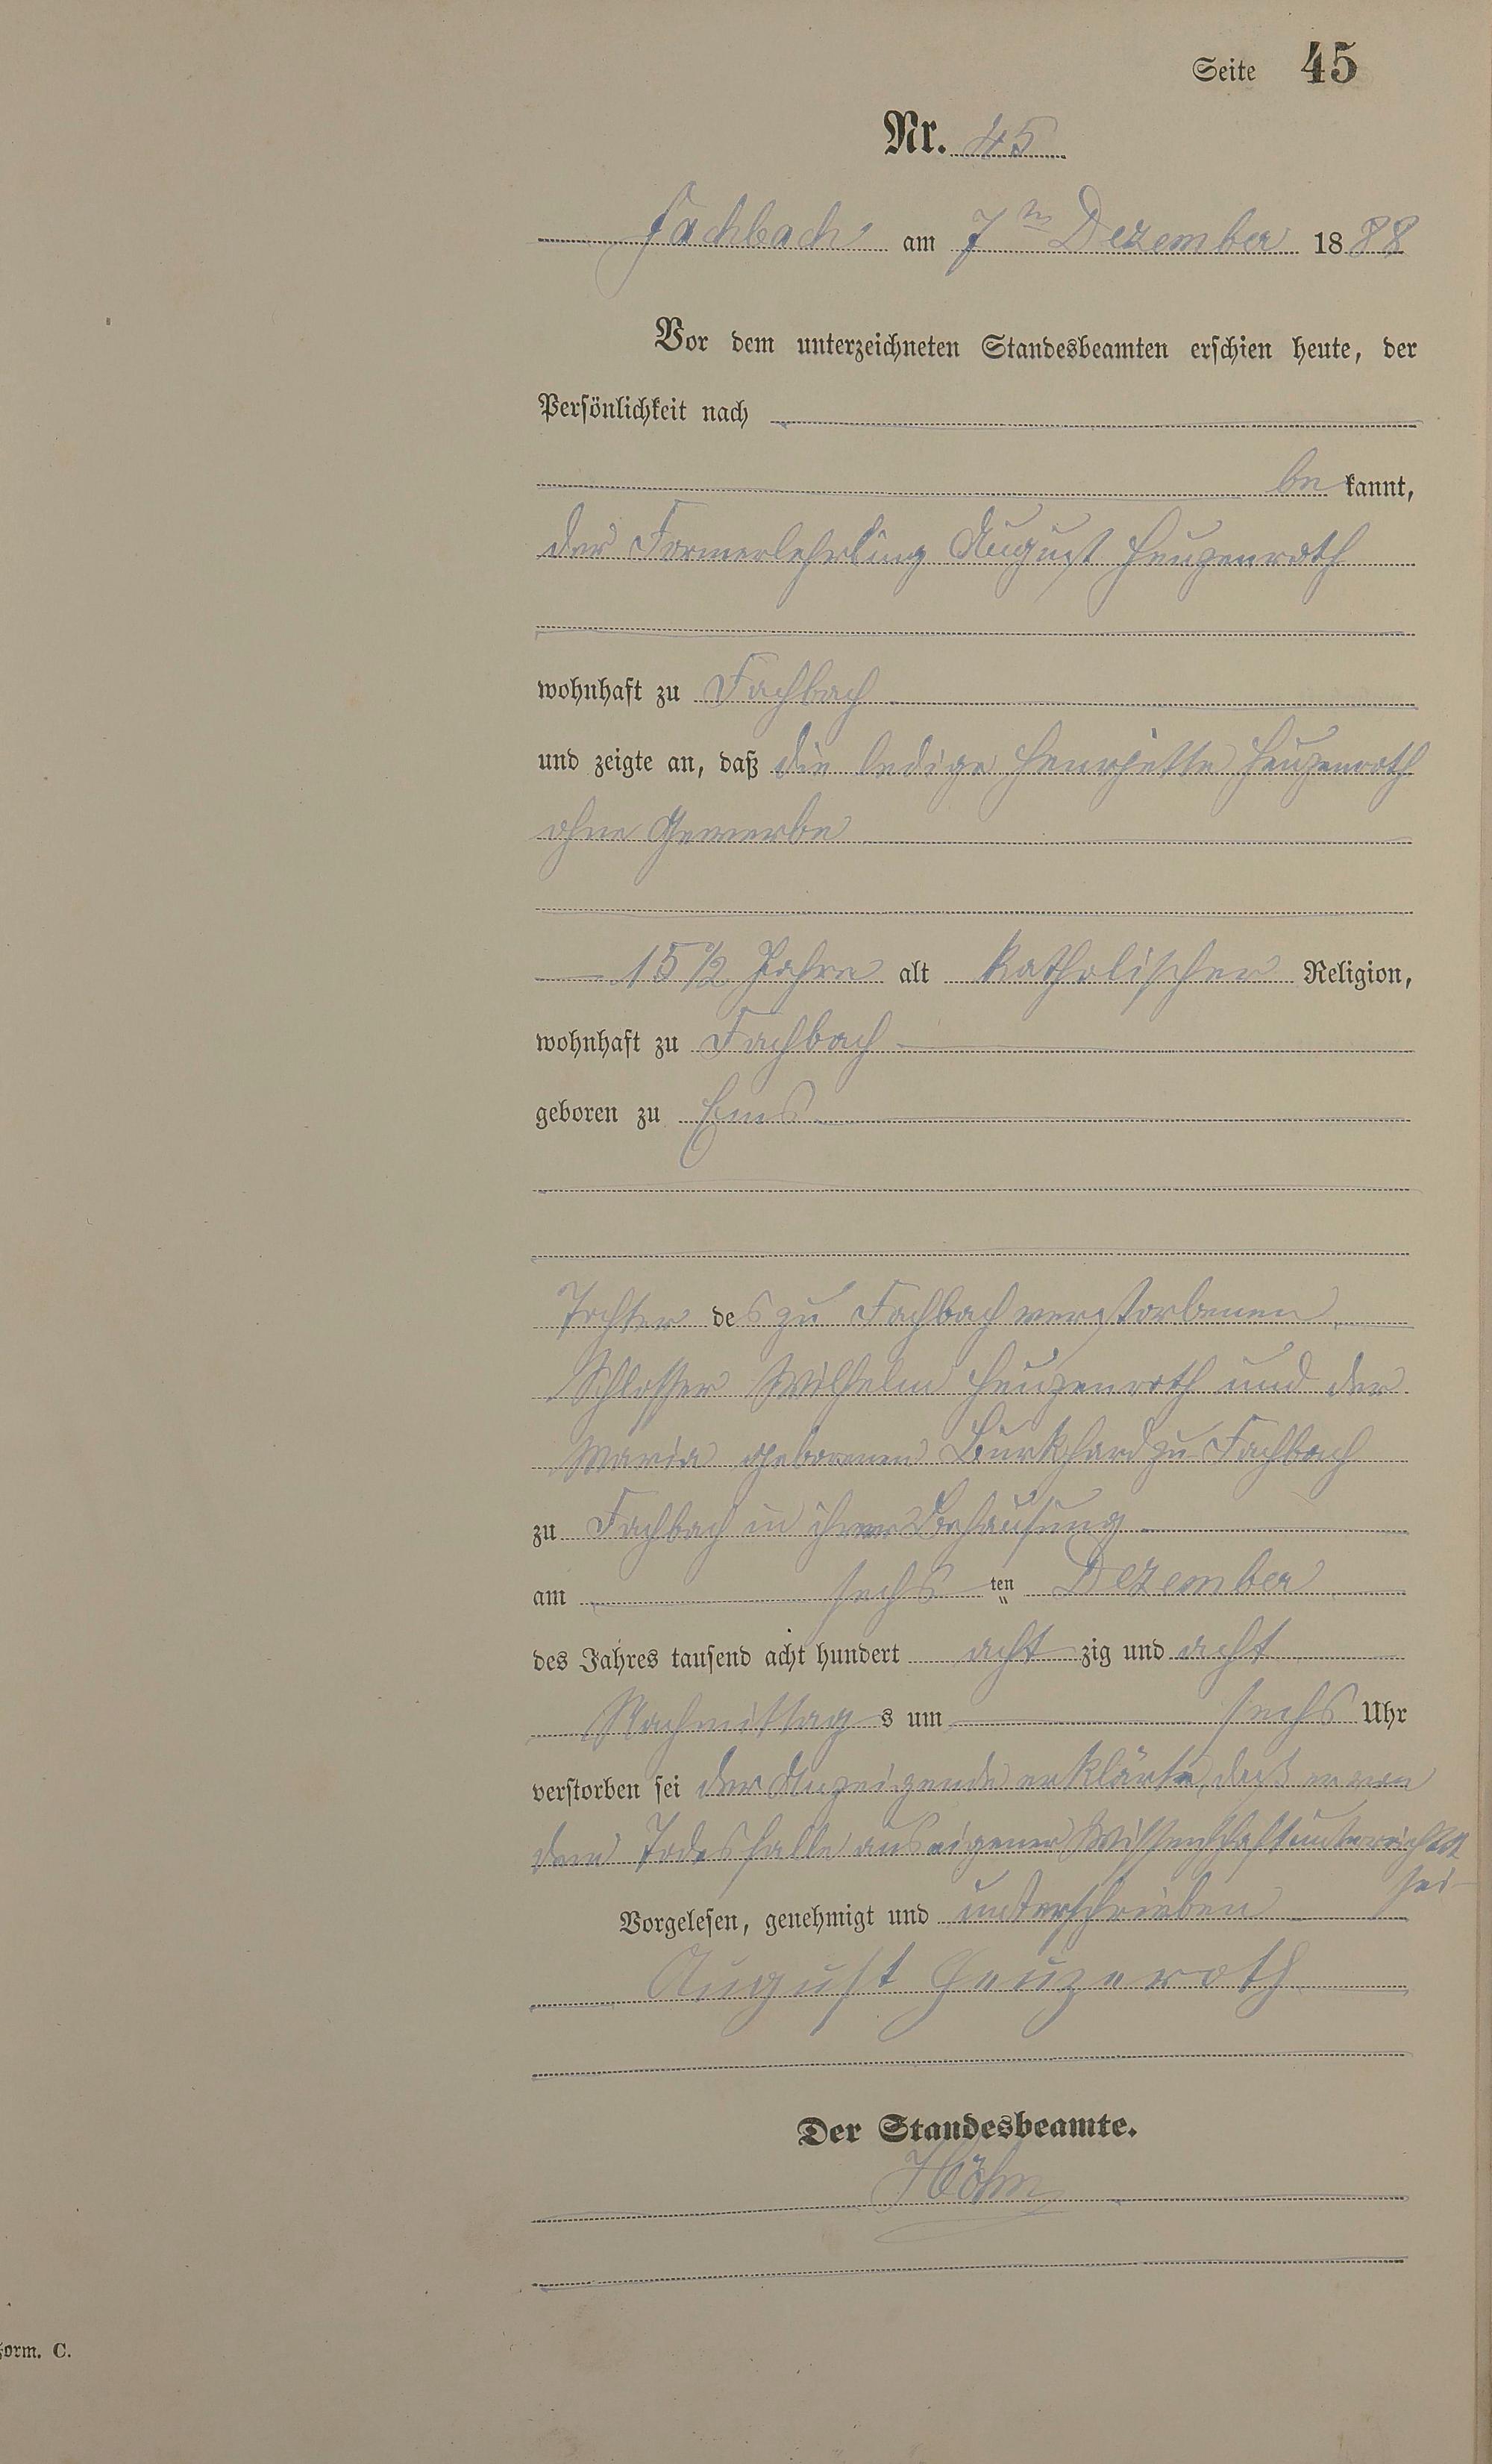 Seite 45
Nr. 45
Fachbach am 7ten Dezember 1888
Vor dem unterzeichneten Standesbeamten erschien heute, der
Persönlichkeit nach
be kannt,
der Formerlehrling August Heuzenroth
wohnhaft zu Fachbach
und zeigte an, daß die ledige Henrjette Heuzenroth
ohne Gewerbe
15 1/2 Jahre alt katholischer Religion,
wohnhaft zu Fachbach
geboren zu Ems
Tochter des zu Fachbach verstorbenen
Schlosser Wilhelm Heuzenroth und der
Maria geborenen Burkhard zu Fachbach
zu Fachbach in ihrer Behausung
am sechs ten Dezember
des Jahres tausend acht hundert acht zig und acht
Nachmittag s um sechs Uhr
verstorben sei der Anzeigende erklärte, daß er von
dem Todesfalle aus eigener Wissenschaft unterrichtet
sei
Vorgelesen, genehmigt und unterschrieben
August Heuzeroth
Der Standesbeamte.
Höhn
Form. C.